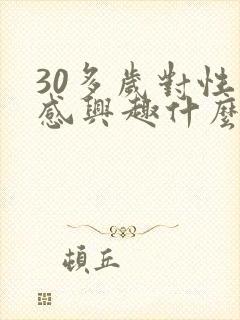 30多歲對性
感興趣什麼
頓丘